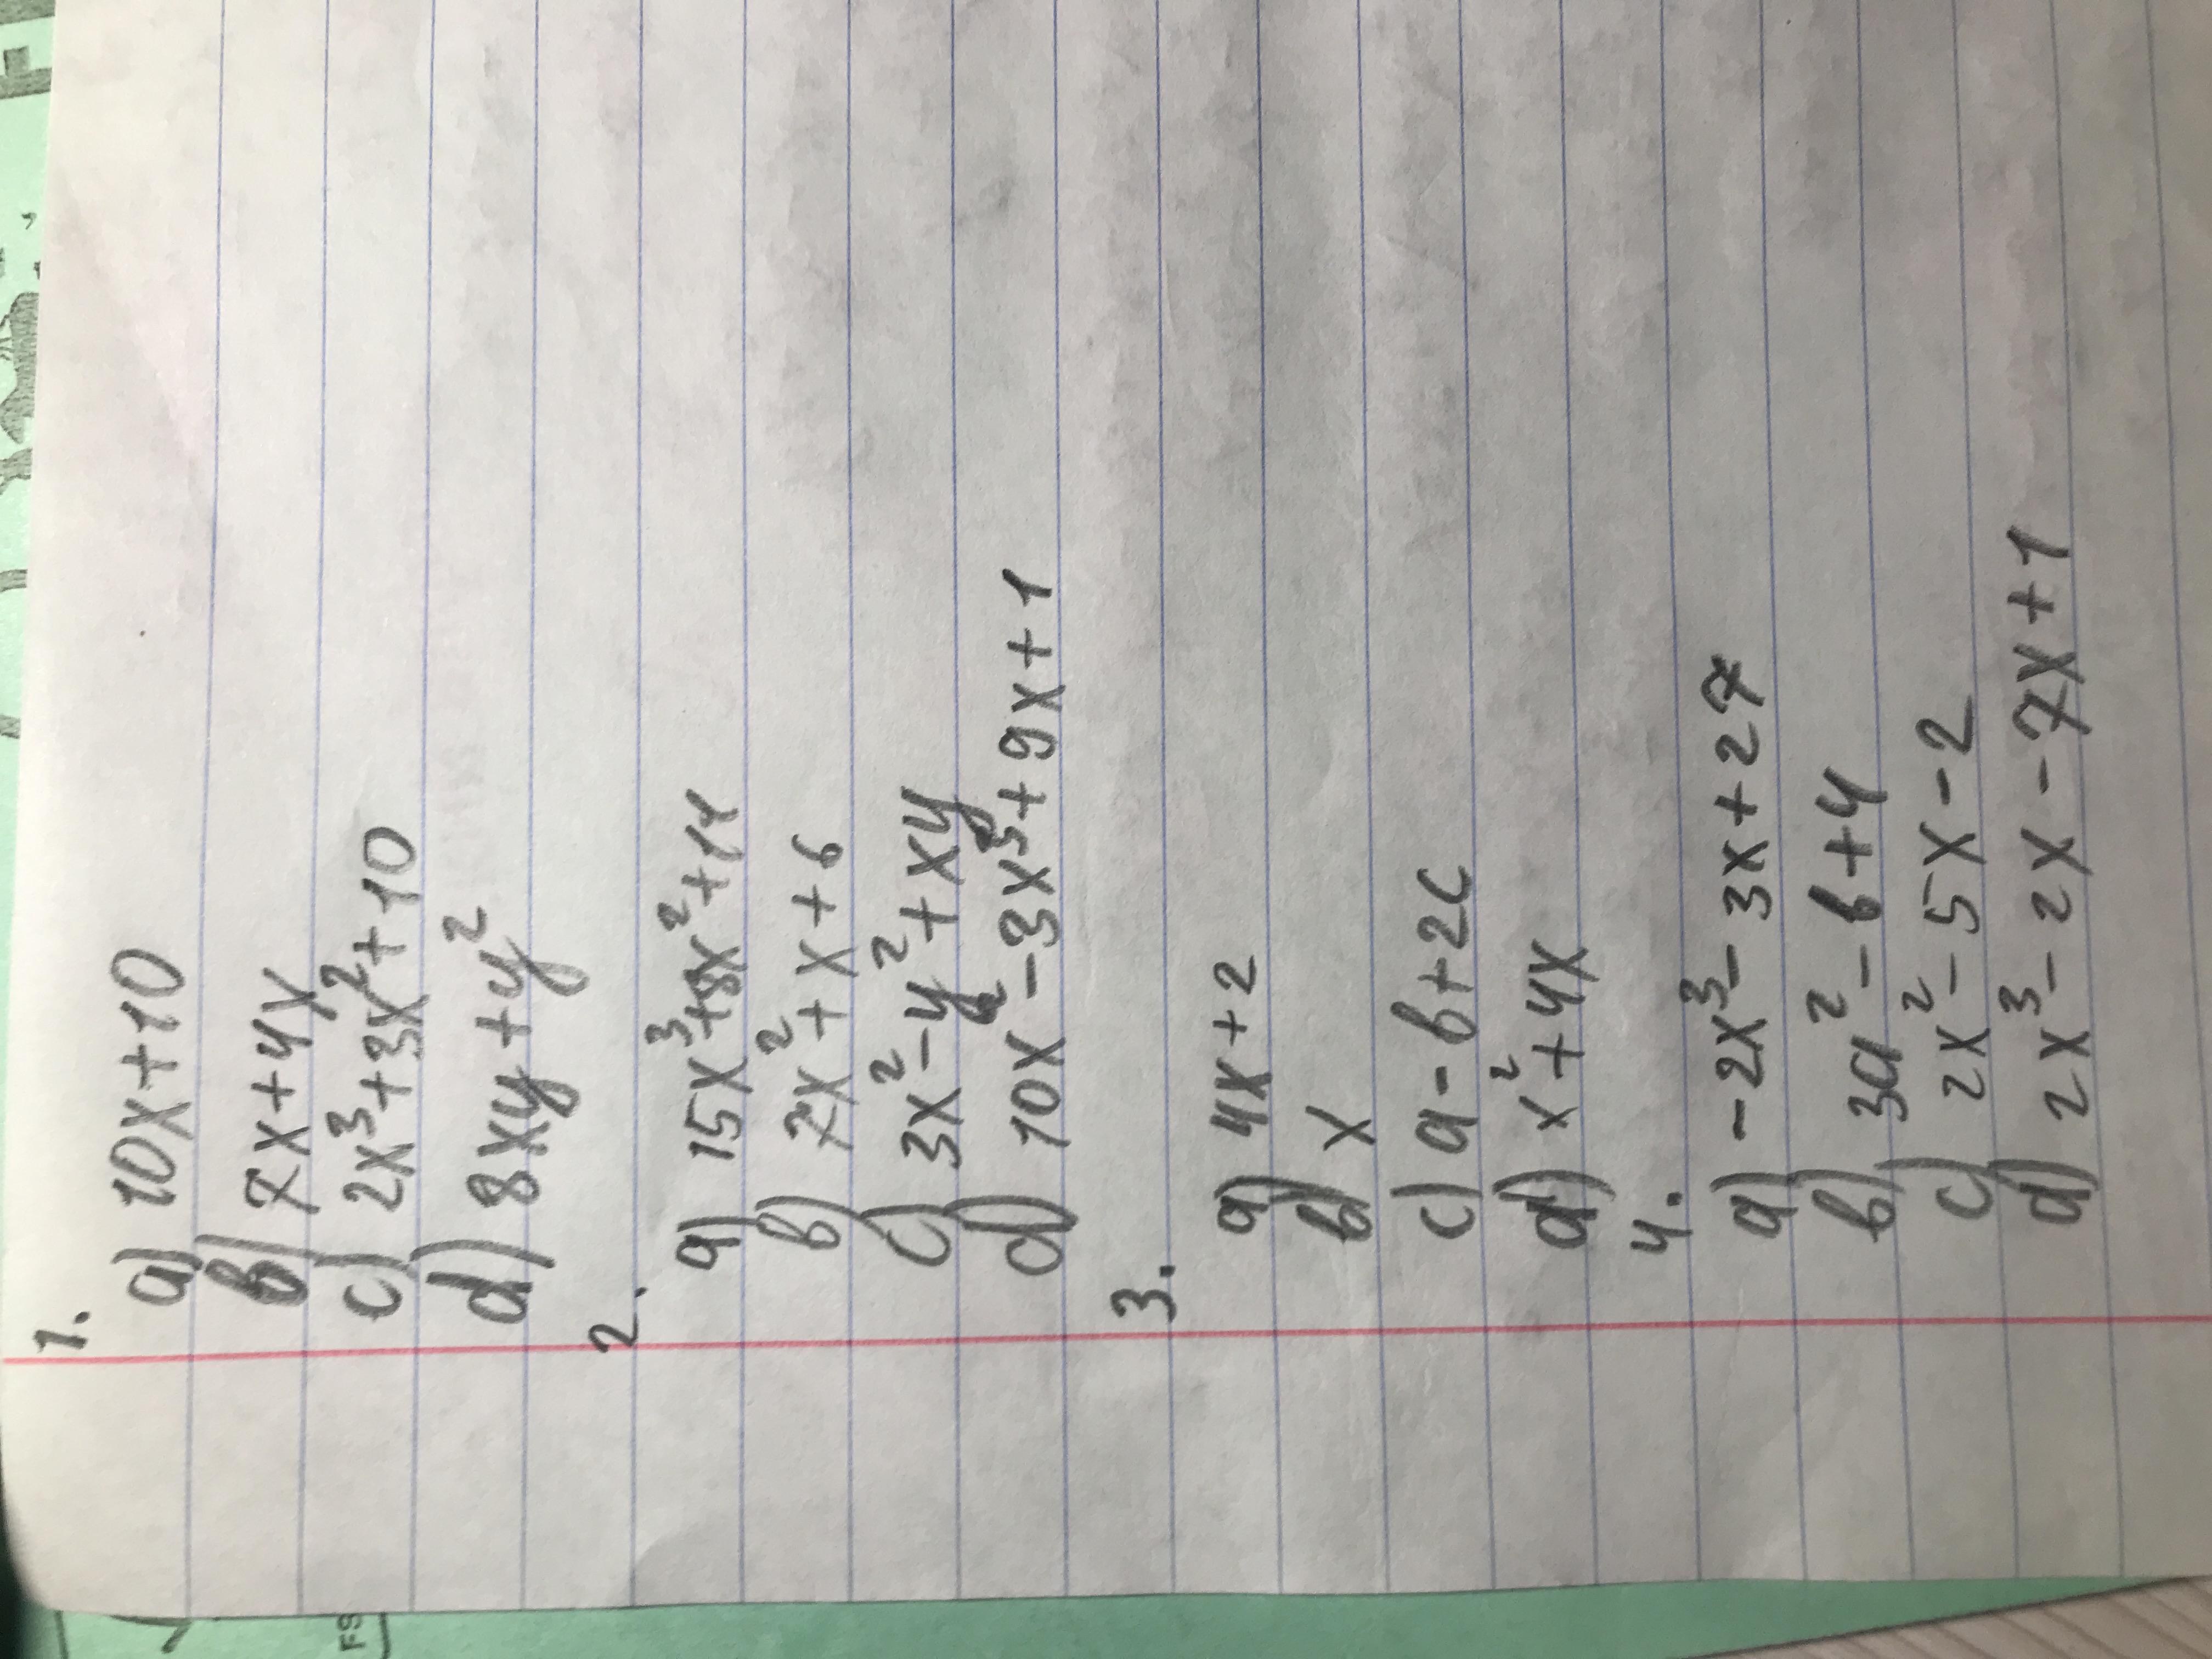 1.
a) 10x+10
b) 7x+4y
c) 2x³+3x²+10
d) 8xy+y²
2.
a) 15x³+8x²+11
b) 7x²+x+6
c) 3x²-y²+xy
d) 10x⁴-3x³+9x+1
3.
a) 4x+2
b) x
c) a-b+2c
d) x²+4x
4.
a) -2x³-3x+27
b) 3a²-b+4
c) 2x²-5x-2
d) 2x³-2x-7x+1
FS